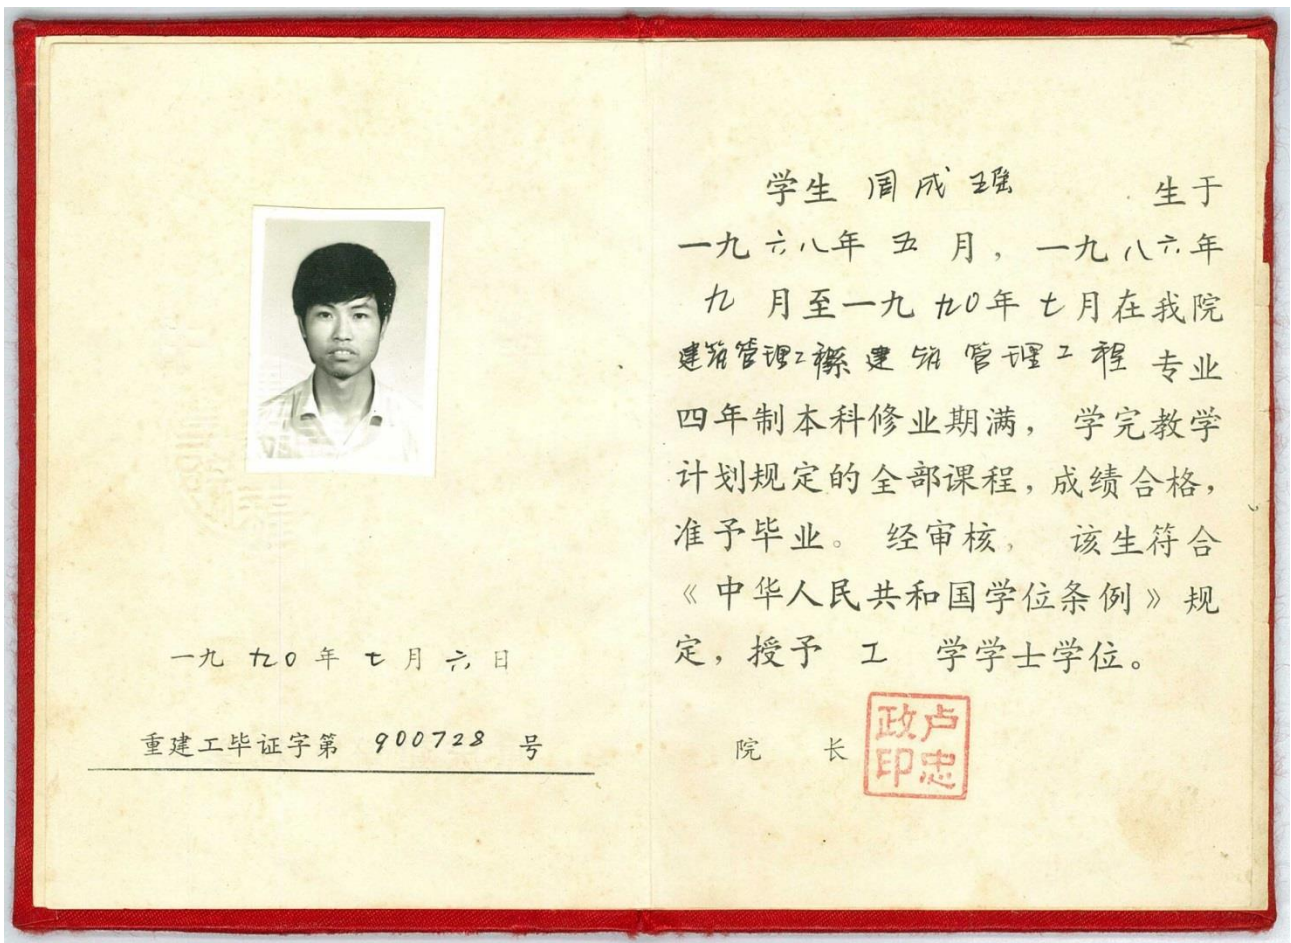 一九九〇年七月六日
重建工毕证字第 900728 号
学生 周成瑶 生于
一九六八年 五 月，一九八六年
九 月至一九九〇年 七月在我院
建筑管理工程系建筑管理工程 专业
四年制本科修业期满，学完教学
计划规定的全部课程，成绩合格，
准予毕业。经审核，该生符合
《中华人民共和国学位条例》规
定，授予 工 学学士学位。
院 长
卢忠政印